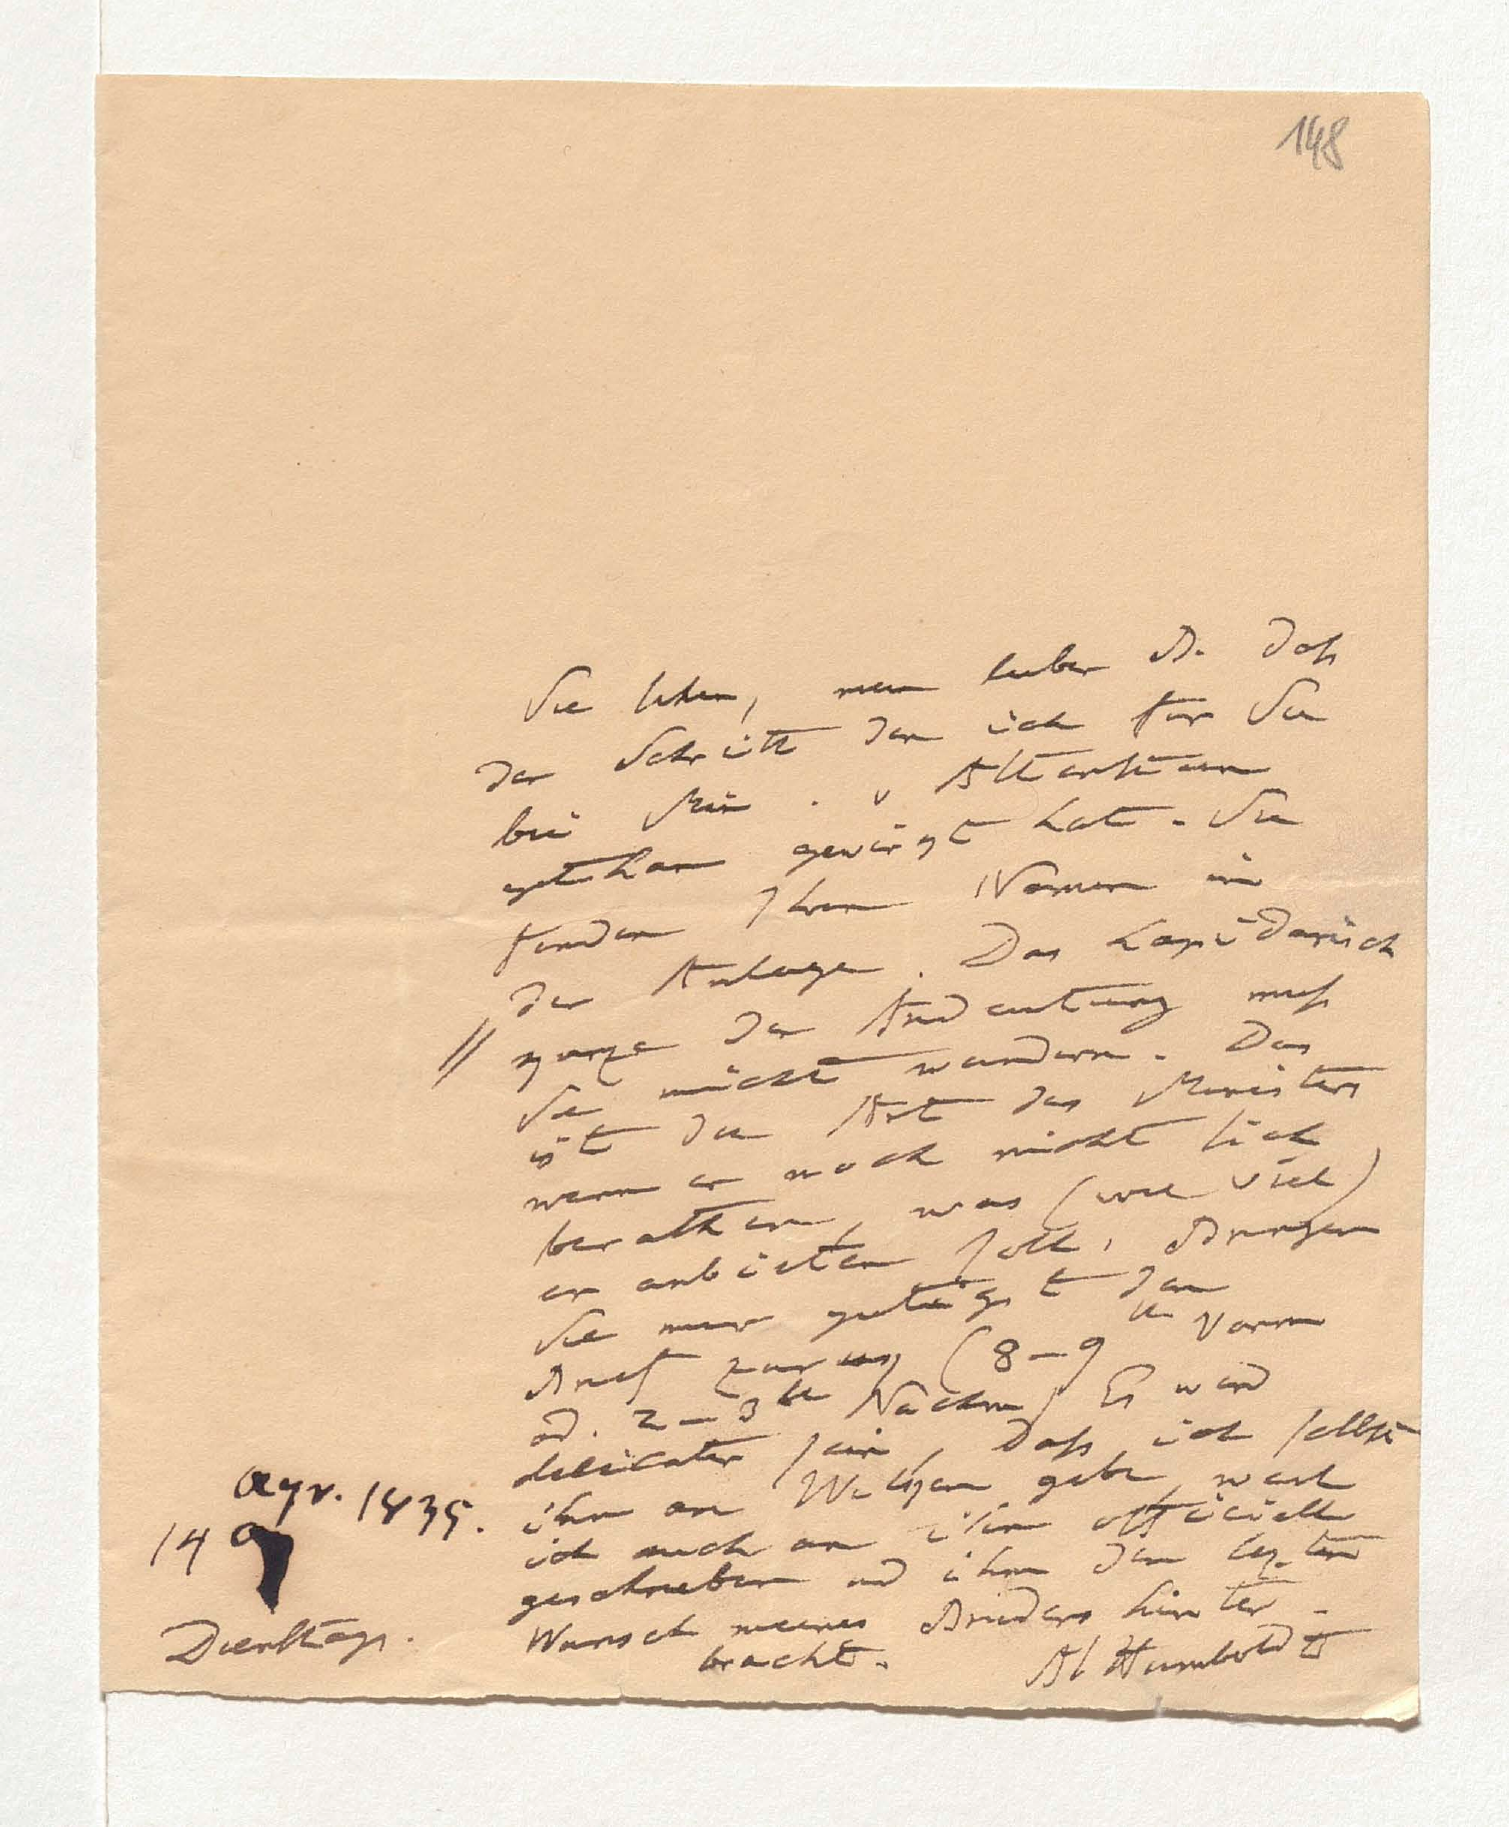 148
Sie sehen, mein lieber B. daß
der Schritt den ich für Sie
bei Min. v Altenstein
gethan gewirgt hat. Sie
finden Ihren Namen in
der Anlage. Das Lapidarisch
kurze der Andeutung muß
Sie nicht wundern. Das
ist die Art des Ministers
wenn er noch nicht sich
berathen, was (wie viel)
er anbieten soll. Bringen
Sie mir gütigst den
Brief zurük (8–9 Vorm
od. 2–3 Nachm) Es wird
delicater sein, daß ich selbst
ihn an Wilken gebe weil
ich auch an ihn officiell
geschrieben und ihm den lezten
Wunsch meines Bruders hinter-
bracht.
Al Humboldt
apr. 1835.
14
Dienstags.